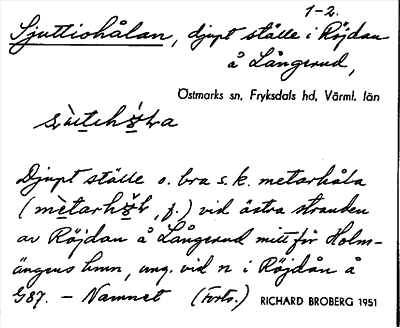 1-2.
Sjuttiohålan, djupt ställe i Röjdan
å Långerud,
Östmarks sn, Fryksdals hd, Värml. län
Djupt ställe o. bra s.k. metarhåla
(, f.) vid östra stranden
av Röjdan å Långerud mitt för Holm-
ängens hmn, ung. vid n i Röjdån å
G87. – Namnet (Forts.) RICHARD BROBERG 1951